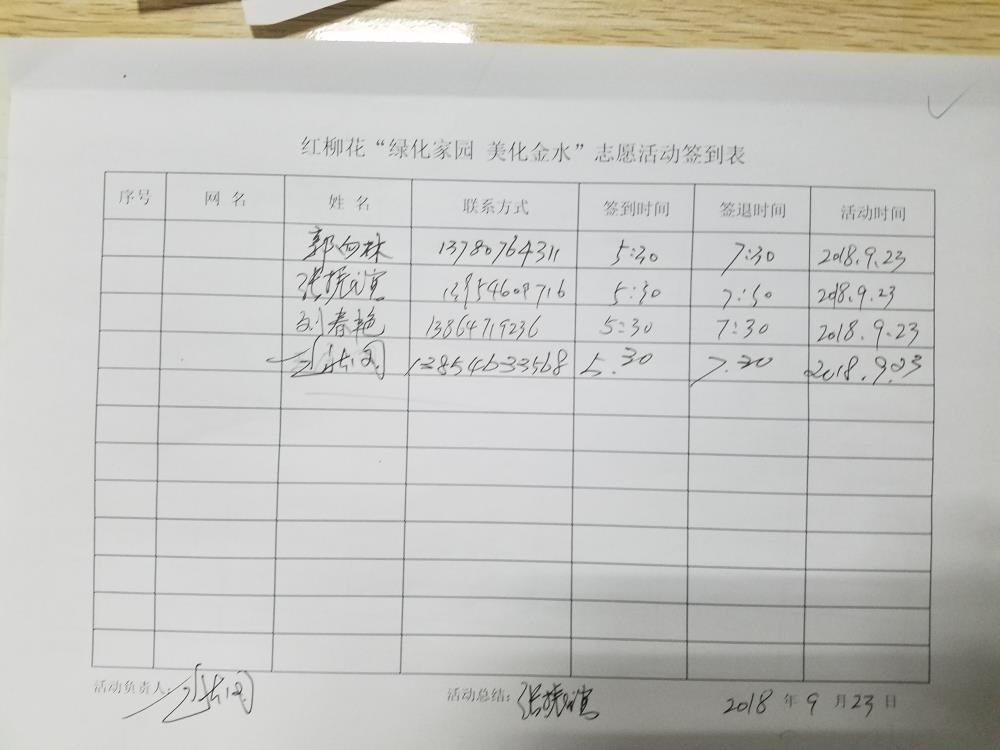 红柳花“绿化家园 美化金水”志愿活动签到表
序号 网 名 姓 名 联系方式 签到时间 签退时间 活动时间
郭向林 13780764311 5:30 7:30 2018.9.23
张振 13954609716 5:30 7:30 2018.9.23
刘春艳 13864719236 5:30 7:30 2018.9.23
13854633568 5.30 7.30 2018.9.23
活动负责人: 活动总结: 张振 2018 年 9 月 23 日